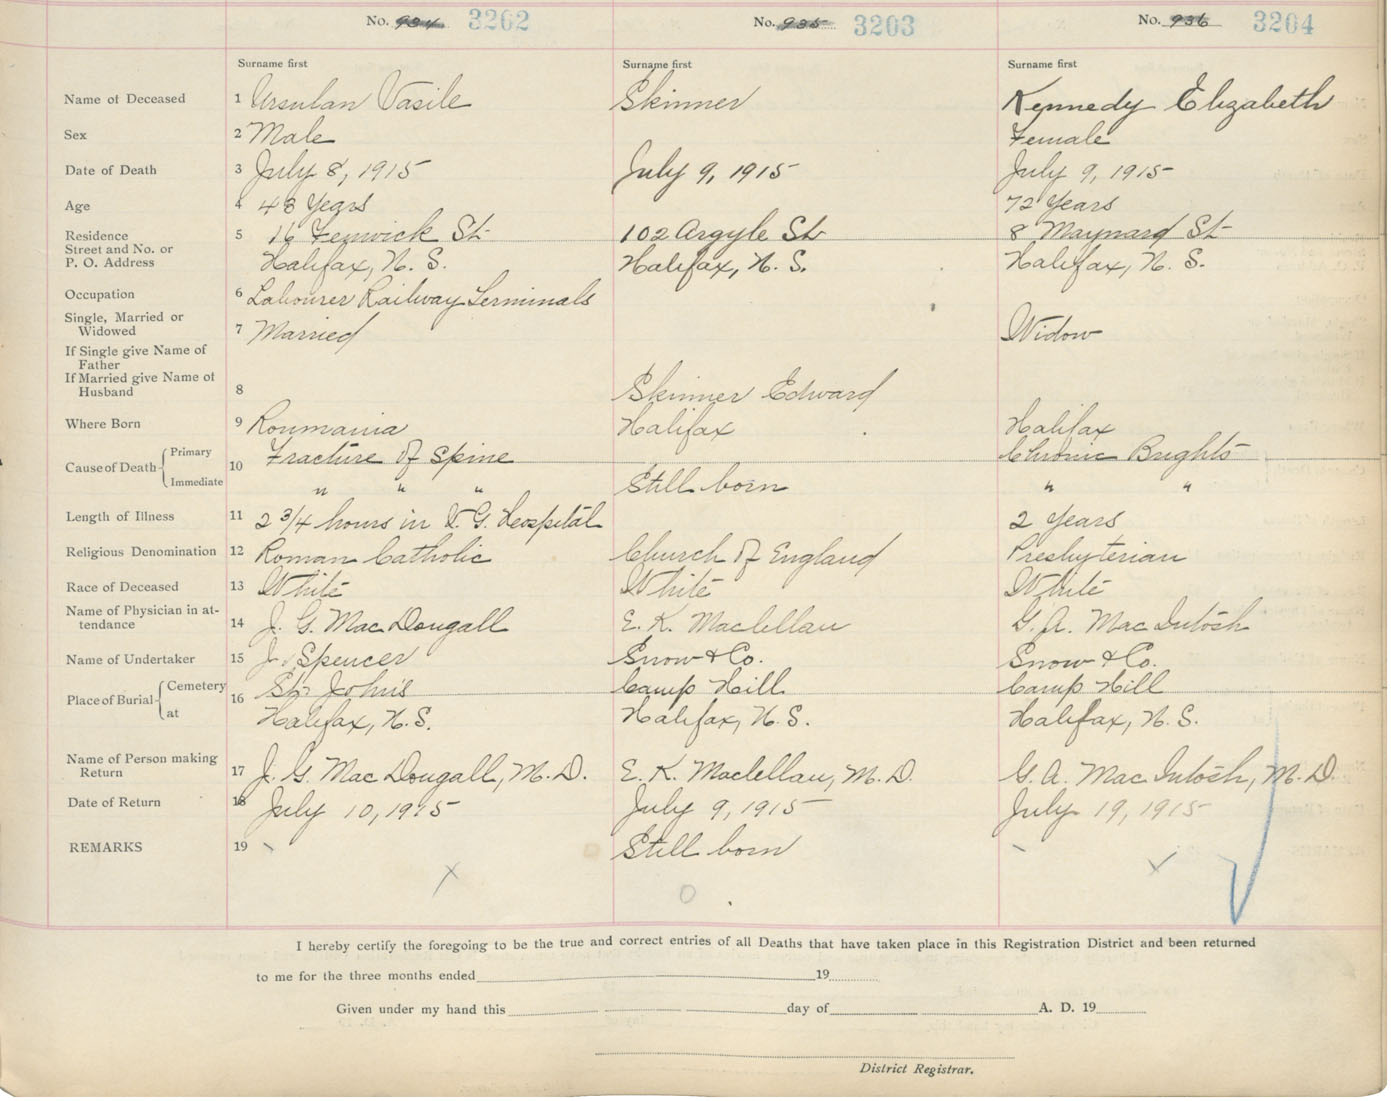 No. 934 3202 No. 935 3203 No. 936 3204
Surname first Surname first Surname first
Name of Deceased 1 Ursulan Vasile Skinner Kennedy Elizabeth
Sex 2 Male Female
Date of Death 3 July 8, 1915 July 9, 1915 July 9, 1915
Age 4 48 Years 72 Years
Residence 5 16 Fenwick St 102 Argyle St 8 Maynard St
Street and No. or
P. O. Address Halifax, N. S. Halifax, N. S. Halifax, N. S.
Occupation 6 Labourer Railway Terminals
Single, Married or
Widowed 7 Married Widow
If Single give Name of
Father
If Married give Name of
Husband 8 Skinner Edward
Where Born 9 Roumania Halifax Halifax
Cause of Death Primary 10 Fracture of Spine Chronic Brights
Immediate " " " Still born " "
Length of Illness 11 2 3/4 hours in V. G. Hospital 2 Years
Religious Denomination 12 Roman Catholic Church of England Presbyterian
Race of Deceased 13 White White White
Name of Physician in at-
tendance 14 J. G. MacDougall E. K. Maclellan G. A. MacIntosh
Name of Undertaker 15 J. Spencer Snow & Co. Snow & Co.
Place of Burial Cemetery 16 St. John's Camp Hill Camp Hill
at Halifax, N. S. Halifax, N. S. Halifax, N. S.
Name of Person making
Return 17 J. G. MacDougall, M. D. E. K. Maclellan, M. D. G. A. MacIntosh, M. D.
Date of Return 18 July 10, 1915 July 9, 1915 July 19, 1915
REMARKS 19 Still born
I hereby certify the foregoing to be the true and correct entries of all Deaths that have taken place in this Registration District and been returned
to me for the three months ended 19
Given under my hand this day of A. D. 19
District Registrar.